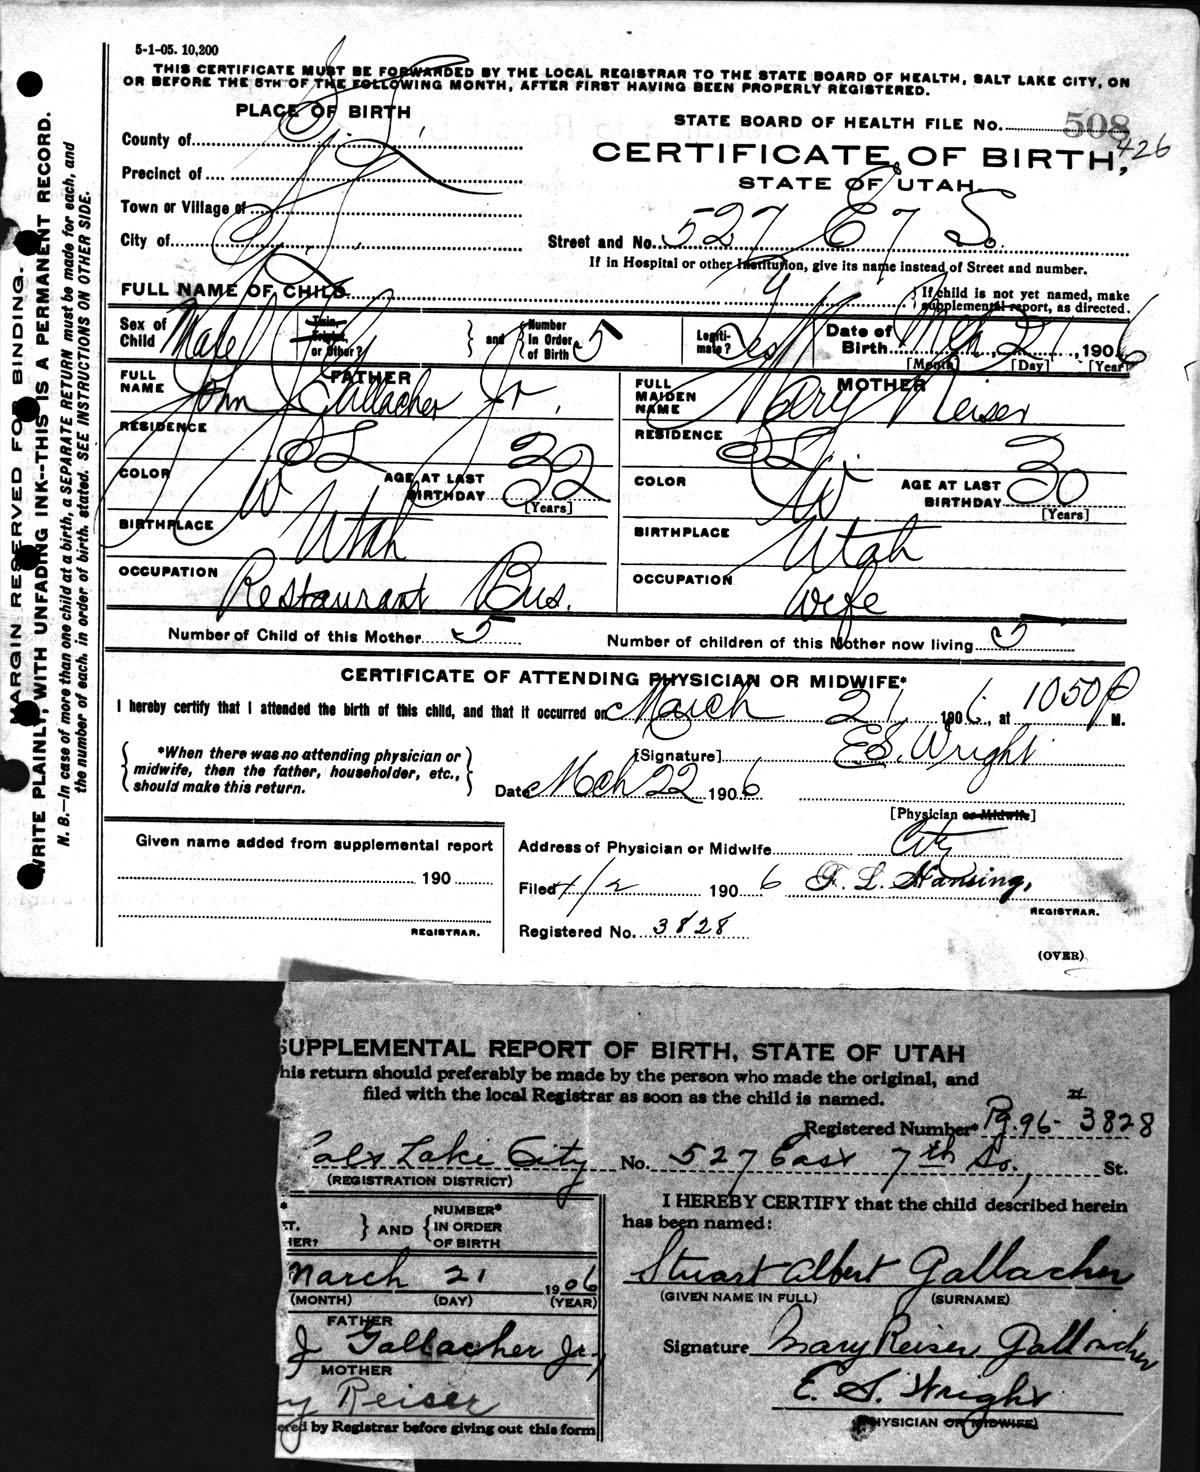 5-1-05. 10,200
THIS CERTIFICATE MUST BE FORWARDED BY THE LOCAL REGISTRAR TO THE STATE BOARD OF HEALTH, SALT LAKE CITY, ON
OR BEFORE THE 5TH OF THE FOLLOWING MONTH, AFTER FIRST HAVING BEEN PROPERLY REGISTERED.
MARGIN RESERVED FOR BINDING.
WRITE PLAINLY, WITH UNFADING INK--THIS IS A PERMANENT RECORD.
N. B.—In case of more than one child at a birth, a SEPARATE RETURN must be made for each, and
the number of each, in order of birth, stated. SEE INSTRUCTIONS ON OTHER SIDE.
PLACE OF BIRTH
STATE BOARD OF HEALTH FILE No. 508
426
CERTIFICATE OF BIRTH,
STATE OF UTAH.
County of S. L.
Precinct of
Town or Village of
City of S. L.
Street and No. 527 E 7 S.
If in Hospital or other Institution, give its name instead of Street and number.
FULL NAME OF CHILD
If child is not yet named, make
supplemental report, as directed.
Sex of Child Male
Twin, Triplet, or Other? and Number in Order of Birth 5
Legitimate? Yes
Date of Birth Mch 21, 1906
[Month] [Day] [Year]
FATHER
FULL NAME John J Gallacher Jr.
MOTHER
FULL MAIDEN NAME Mary Reiser
RESIDENCE S L
RESIDENCE S L.
COLOR W
AGE AT LAST BIRTHDAY 32 [Years]
COLOR W
AGE AT LAST BIRTHDAY 30 [Years]
BIRTHPLACE Utah
BIRTHPLACE Utah
OCCUPATION Restaurant Bus.
OCCUPATION Wife
Number of Child of this Mother 5
Number of children of this Mother now living 5
CERTIFICATE OF ATTENDING PHYSICIAN OR MIDWIFE*
I hereby certify that I attended the birth of this child, and that it occurred on March 21, 1906, at 1050 P M.
*When there was no attending physician or
midwife, then the father, householder, etc.,
should make this return.
[Signature] E S. Wright
Date Mch 22 1906
[Physician or Midwife]
Given name added from supplemental report
190
REGISTRAR.
Address of Physician or Midwife City
Filed 4/2 1906 F. L. Hansing,
REGISTRAR.
Registered No. 3828
(OVER)
SUPPLEMENTAL REPORT OF BIRTH, STATE OF UTAH
his return should preferably be made by the person who made the original, and
filed with the local Registrar as soon as the child is named.
Registered Number* Pg. 96- # 3828
Salt Lake City No. 527 East 7th So., St.
(REGISTRATION DISTRICT)
AND NUMBER* IN ORDER OF BIRTH
HER?
I HEREBY CERTIFY that the child described herein
has been named:
March 21 1906
(MONTH) (DAY) (YEAR)
Stuart Albert Gallacher
(GIVEN NAME IN FULL) (SURNAME)
FATHER
J Gallacher Jr.
Signature Mary Reiser Gallacher
MOTHER
y Reiser
E. S. Wright
PHYSICIAN OR MIDWIFE)
ered by Registrar before giving out this form